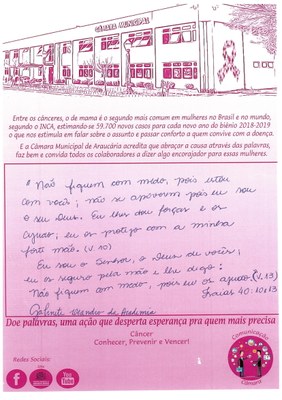 CÂMARA MUNICIPAL
Entre os cânceres, o de mama é o segundo mais comum em mulheres no Brasil e no mundo,
segundo o INCA, estimando-se 59.700 novos casos para cada novo ano do biênio 2018-2019
o que nos estimula em falar sobre o assunto e passar conforto a quem convive com a doença.
E a Câmara Municipal de Araucária acredita que abraçar a causa através das palavras,
faz bem e convida todos os colaboradores a dizer algo encorajador para essas mulheres.
" Não fiquem com medo, pois estou
com vocês; não se apavorem pois eu sou
o seu Deus. Eu lhes dou forças e os
ajudo; eu os protejo com a minha
forte mão. (v.10)
Eu sou o Senhor, o Deus de vocês;
eu os seguro pela mão e lhes digo:
Não fiquem com medo, pois eu os ajudo" (v.13)
Isaías 40:10 e 13
Gabinete Vereador
Doe palavras, uma ação que desperta esperança pra quem mais precisa
Câncer
Conhecer, Prevenir e Vencer!
Redes Sociais:
f
You
Tube
Comunicação
Câmara